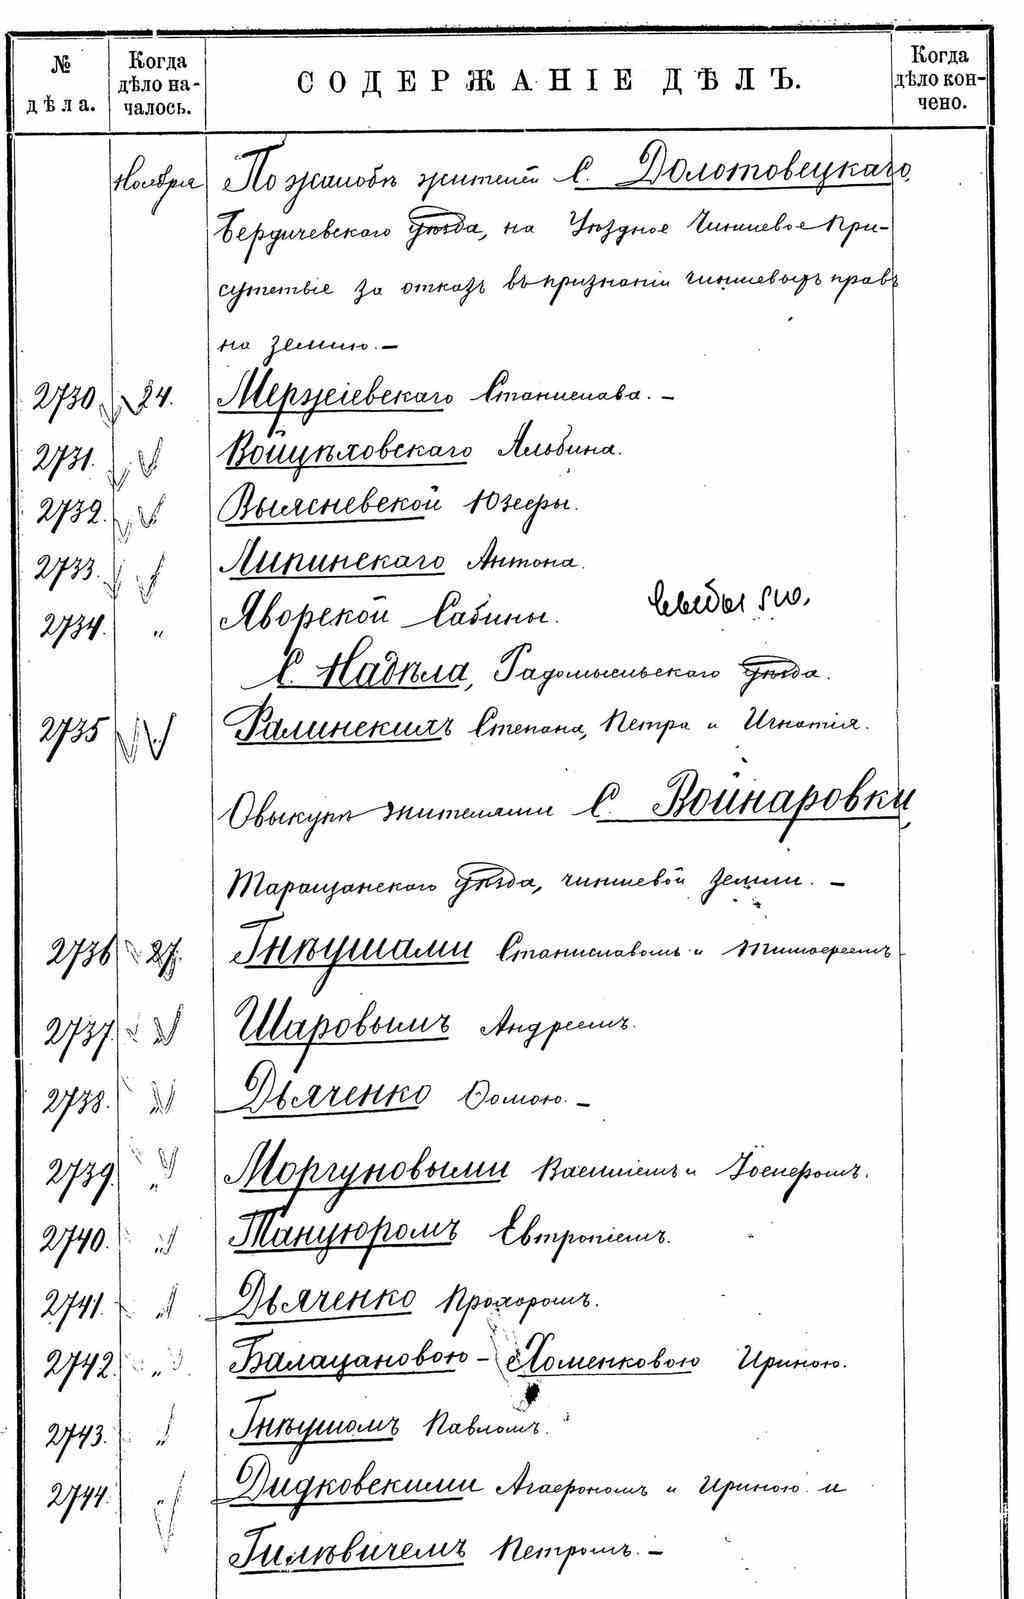 № дѣла.
Когда дѣло началось.
СОДЕРЖАНІЕ ДѢЛЪ.
Когда дѣло кончено.
Ноября По жалобѣ жителей С. Долотовецкаго,
Бердичевскаго уѣзда, на Уѣздное Чиншевое При-
сутствіе за отказъ въ признаніи чиншевыхъ правъ
на землю. —
2730. 24. Мержеіевскаго Станислава. —
2731. Войцѣховскаго Альбина.
2732. Выясневской Юзефы.
2733. Липинскаго Антона.
2734. „ Яворской Сабины.
С. Надѣла, Радомысльскаго уѣзда.
2735 Ралинскихъ Степана, Петра и Игнатія.
О выкупѣ жителями С. Войнаровки,
Таращанскаго уѣзда, чиншевой земли. —
2736 27. Гнѣушами Станиславомъ и Тимофеемъ
2737. Шаровымъ Андреемъ.
2738. „ Дьяченко Фомою. —
2739. „ Моргуновыми Василіемъ и Іосифомъ.
2740. „ Танцюромъ Евтропіемъ.
2741. „ Дьяченко Прохоромъ.
2742. „ Балацановою - Хоменковою Ириною.
2743. „ Гнѣушомъ Павломъ.
2744. „ Дидковскими Агафономъ и Ириною и
Гилевичемъ Петромъ. —